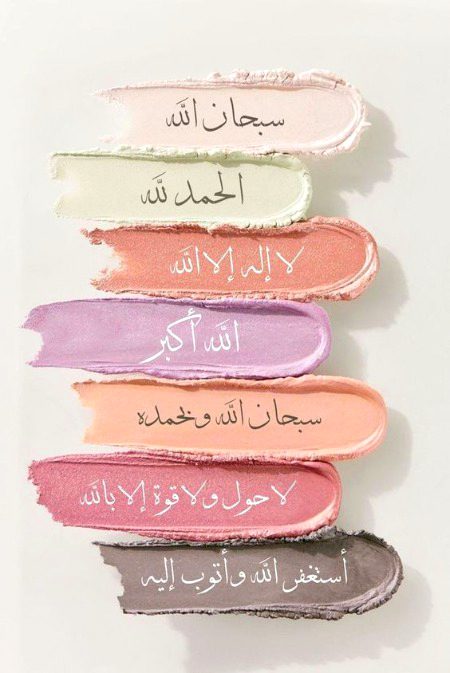 سبحان الله
الحمد لله
لا إله إلا الله
الله أكبر
سبحان الله وبحمده
لا حول ولا قوة إلا بالله
أستغفر الله وأتوب إليه